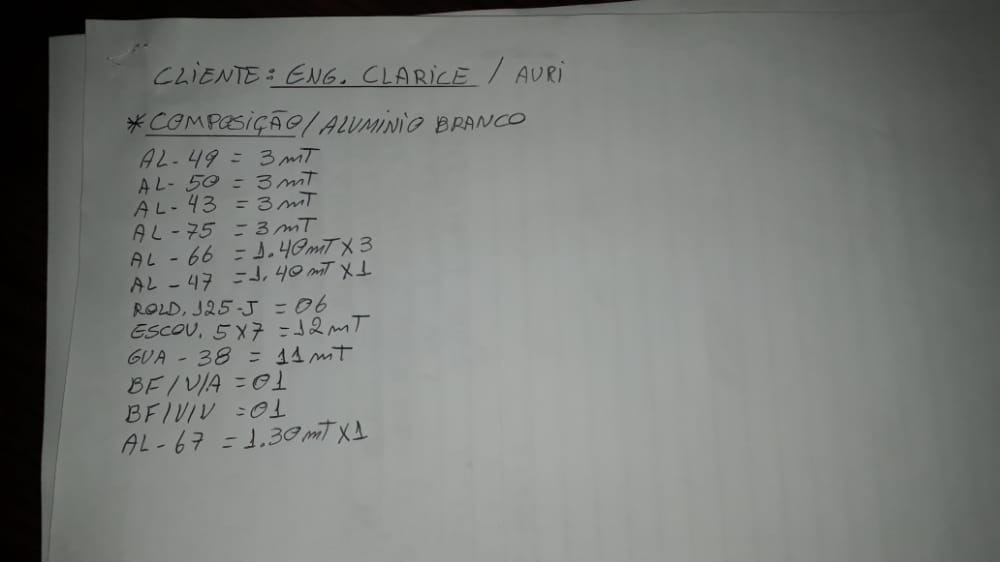 CLIENTE: ENG. CLARICE / AURI
*COMPOSIÇÃO/ALUMÍNIO BRANCO
AL-49 = 3mT
AL-50 = 3mT
AL-43 = 3mT
AL-75 = 3mT
AL-66 = 1.40mT X 3
AL-47 = 1.40mT X 1
ROLD. 125-J = 06
ESCOV. 5X7 = 12mT
GUA-38 = 11mT
BF/V/A = 01
BF/V/V = 01
AL-67 = 1.30mT X 1